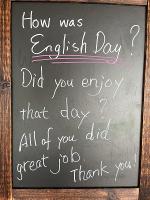 How was
English Day?
Did you enjoy
that day?
All of you did
great job.
Thank you!